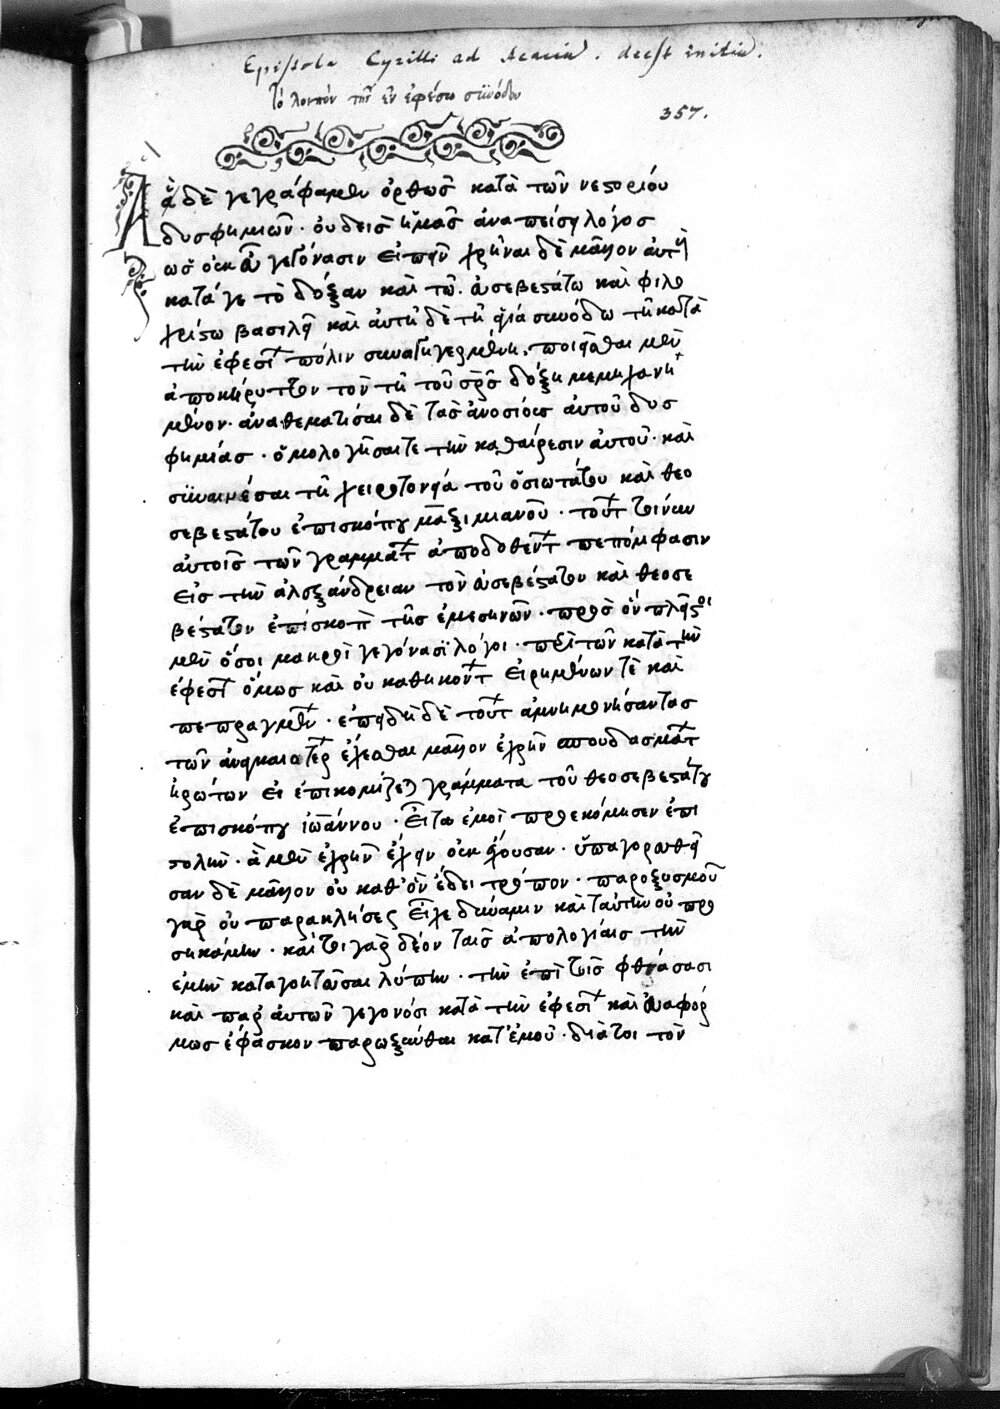 Epistola Cyrilli ad Acaciū. deest initiū.
Τὸ λοιπόν τῆς ἐν ἐφέσω συνόδου
357.
Ἃ δὲ γεγράφαμεν ὀρθῶς κατὰ τῶν νεστορίου
δυσφημιῶν· οὐδεὶς ἡμᾶς ἀναπείσῃ λόγος
ὡς οὐκ ἂν γεγόνασιν εἰπεῖν χρῆναι δὲ μᾶλλον αὐτῆ
κατά γε τὸ δόξαν καὶ τῶ. εὐσεβεστάτω καὶ φιλο
χρίστω βασιλεῖ καὶ αὐτῆ δὲ τῆ ἁγία συνόδω τῆ κατὰ
τὴν ἐφεσί πόλιν συναγηγερμένη. ποιεῖσθαι μὲν
ἀποκήρυττον τὸν τῆ τοῦ σρσ δόξη μεμηχανη
μένον· ἀναθεματίσαι δὲ τὰς ἀνοσίους αὐτοῦ δυσ
φημίας· ὁμολογῆσαί τε τὴν καθαίρεσιν αὐτοῦ· καὶ
συναινέσαι τῆ χειροτονία τοῦ ὁσιωτάτου καὶ θεο
σεβεστάτου ἐπισκόπου μαξιμιανοῦ· τούτ τοίνυν
αὐτοῖς τῶν γραμμάτ ἀποδοθέντ πεπόμφασιν
εἰς τὴν ἀλεξάνδρειαν τὸν εὐσεβέστατον καὶ θεοσε
βέστατον ἐπίσκοπ τῆς ἐμεσηνῶν· πρὸς ὃν πλεῖστοι
μὲν ὅσοι μακροὶ γεγόνασϊ λόγοι· περὶ τῶν κατὰ τὴν
ἐφεσί ὅμως καὶ οὐ καθηκόντ εἰρημένων τὲ καὶ
πεπραγμέν· ἐπειδὴ δὲ τούτ ἀμνημονήσαντας
τῶν ἀναγκαιοτέρ ἔχεσθαι μᾶλλον ἐχρῆν σπουδασμάτ
ἠρώτων εἰ ἐπικομίζεται γράμματα τοῦ θεοσεβεστάτου
ἐπισκόπου ἰωάννου· Εἶτα ἐμοὶ προεκόμισεν ἐπι
στολὴν· ἃ μὲν ἐχρῆν ἔχειν οὐκ ἔχουσαν· ὑπαγορευθεῖ
σαν δὲ μᾶλλον οὐ καθ' ὃν ἔδει τρόπον· παροξυσμοῦ
γὰρ οὐ παρακλήσεως εἶχε δύναμιν καὶ ταύτην οὐ προ
σηκάμην· καί τοι γὰρ δέον ταῖς ἀπολογίαις τὴν
ἐμὴν καταγοητεῦσαι λύπην· τὴν ἐπὶ τοῖς φθάσασι
καὶ παρ αὐτῶν γεγονόσι κατὰ τὴν ἐφεσί καὶ εὐαφόρ
μως ἔφασκον παρωξύνθαι κατ' ἐμοῦ· διὰ τοι τὸν